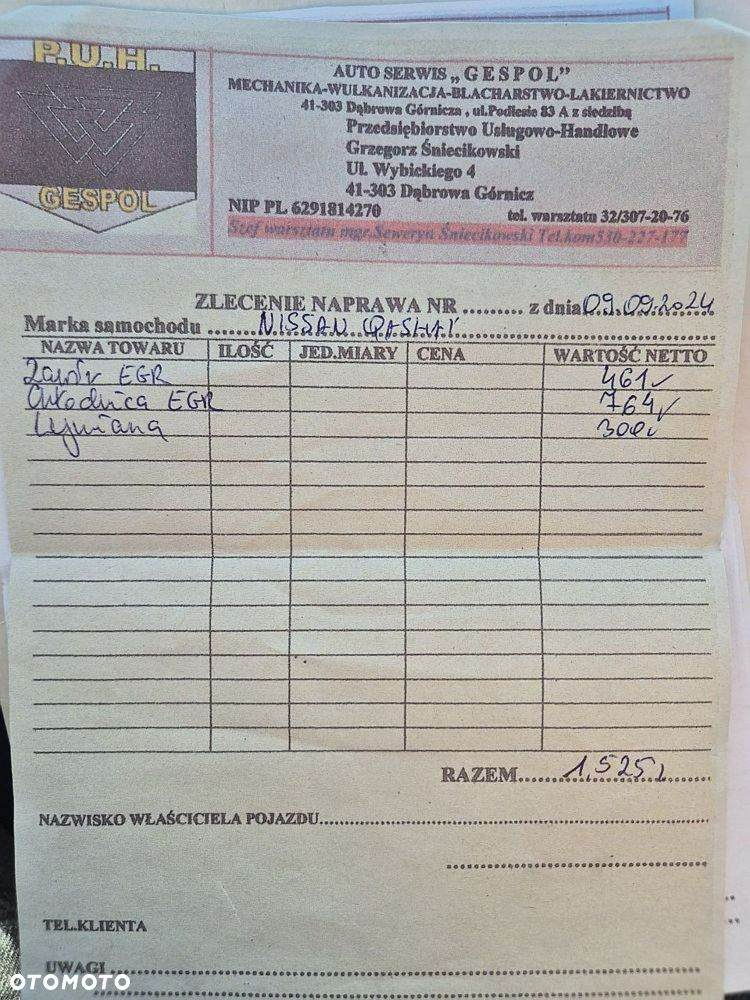 P.U.H.
GESPOL
AUTO SERWIS „GESPOL”
MECHANIKA-WULKANIZACJA-BLACHARSTWO-LAKIERNICTWO
41-303 Dąbrowa Górnicza , ul.Podlesie 83 A z siedzibą
Przedsiębiorstwo Usługowo-Handlowe
Grzegorz Śniecikowski
Ul. Wybickiego 4
41-303 Dąbrowa Górnicz
NIP PL 6291814270 tel. warsztatu 32/307-20-76
Szef warsztatu mgr.Seweryn Śniecikowski Tel.kom530-227-177
ZLECENIE NAPRAWA NR .......... z dnia 09.09.2024
Marka samochodu NISSAN QASHAY
NAZWA TOWARU ILOŚĆ JED.MIARY CENA WARTOŚĆ NETTO
Zawór EGR 461
Chłodnica EGR 764
Wymiana 300
RAZEM 1.525
NAZWISKO WŁAŚCICIELA POJAZDU
TEL.KLIENTA
UWAGI
OTOMOTO